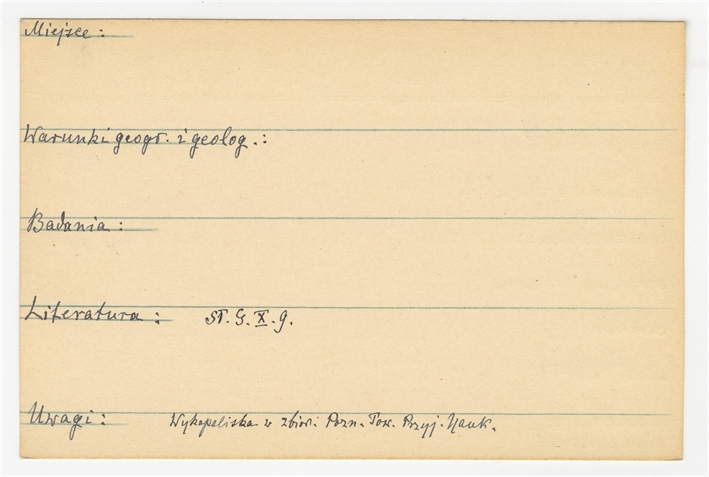 Miejsce :
Warunki geogr. i geolog. :
Badania :
Literatura : St. G. X. 9.
Uwagi : Wykopaliska w zbior. Pozn. Tow. Przyj. Nauk.